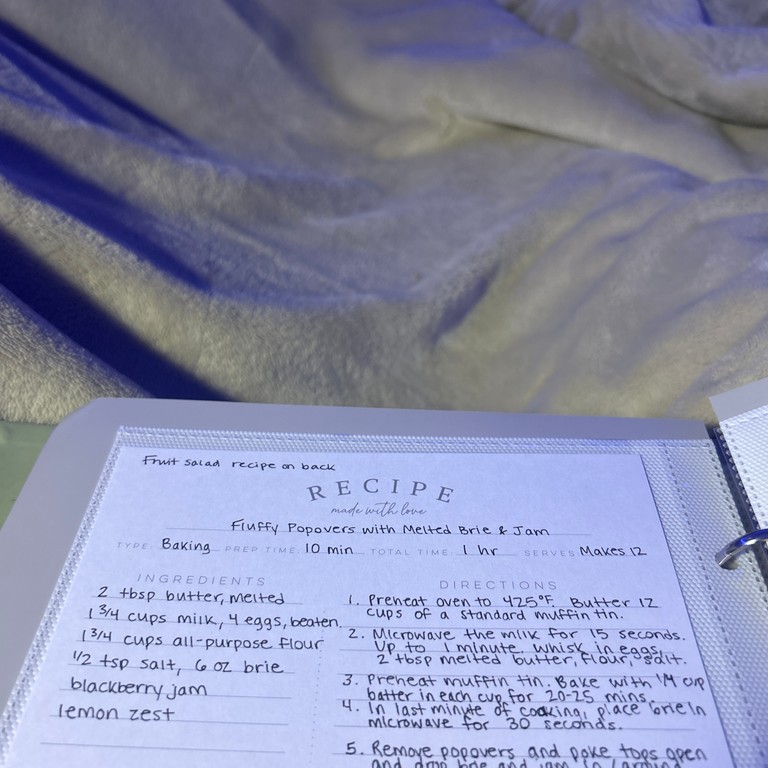 Fruit salad recipe on back
RECIPE
made with love
Fluffy Popovers with Melted Brie & Jam
TYPE: Baking PREP TIME: 10 min TOTAL TIME: 1 hr SERVES: Makes 12
INGREDIENTS
2 tbsp butter, melted
1 3/4 cups milk, 4 eggs, beaten,
1 3/4 cups all-purpose flour
1/2 tsp salt, 6 oz brie
blackberry jam
lemon zest
DIRECTIONS
1. Preheat oven to 425°F. Butter 12
cups of a standard muffin tin.
2. Microwave the milk for 15 seconds.
Up to 1 minute. Whisk in eggs,
2 tbsp melted butter, flour, salt.
3. Preheat muffin tin. Bake with 1/4 cup
batter in each cup for 20-25 mins.
4. In last minute of cooking, place brie in
microwave for 30 seconds.
5. Remove popovers and poke tops open
and drop brie and jam in/around